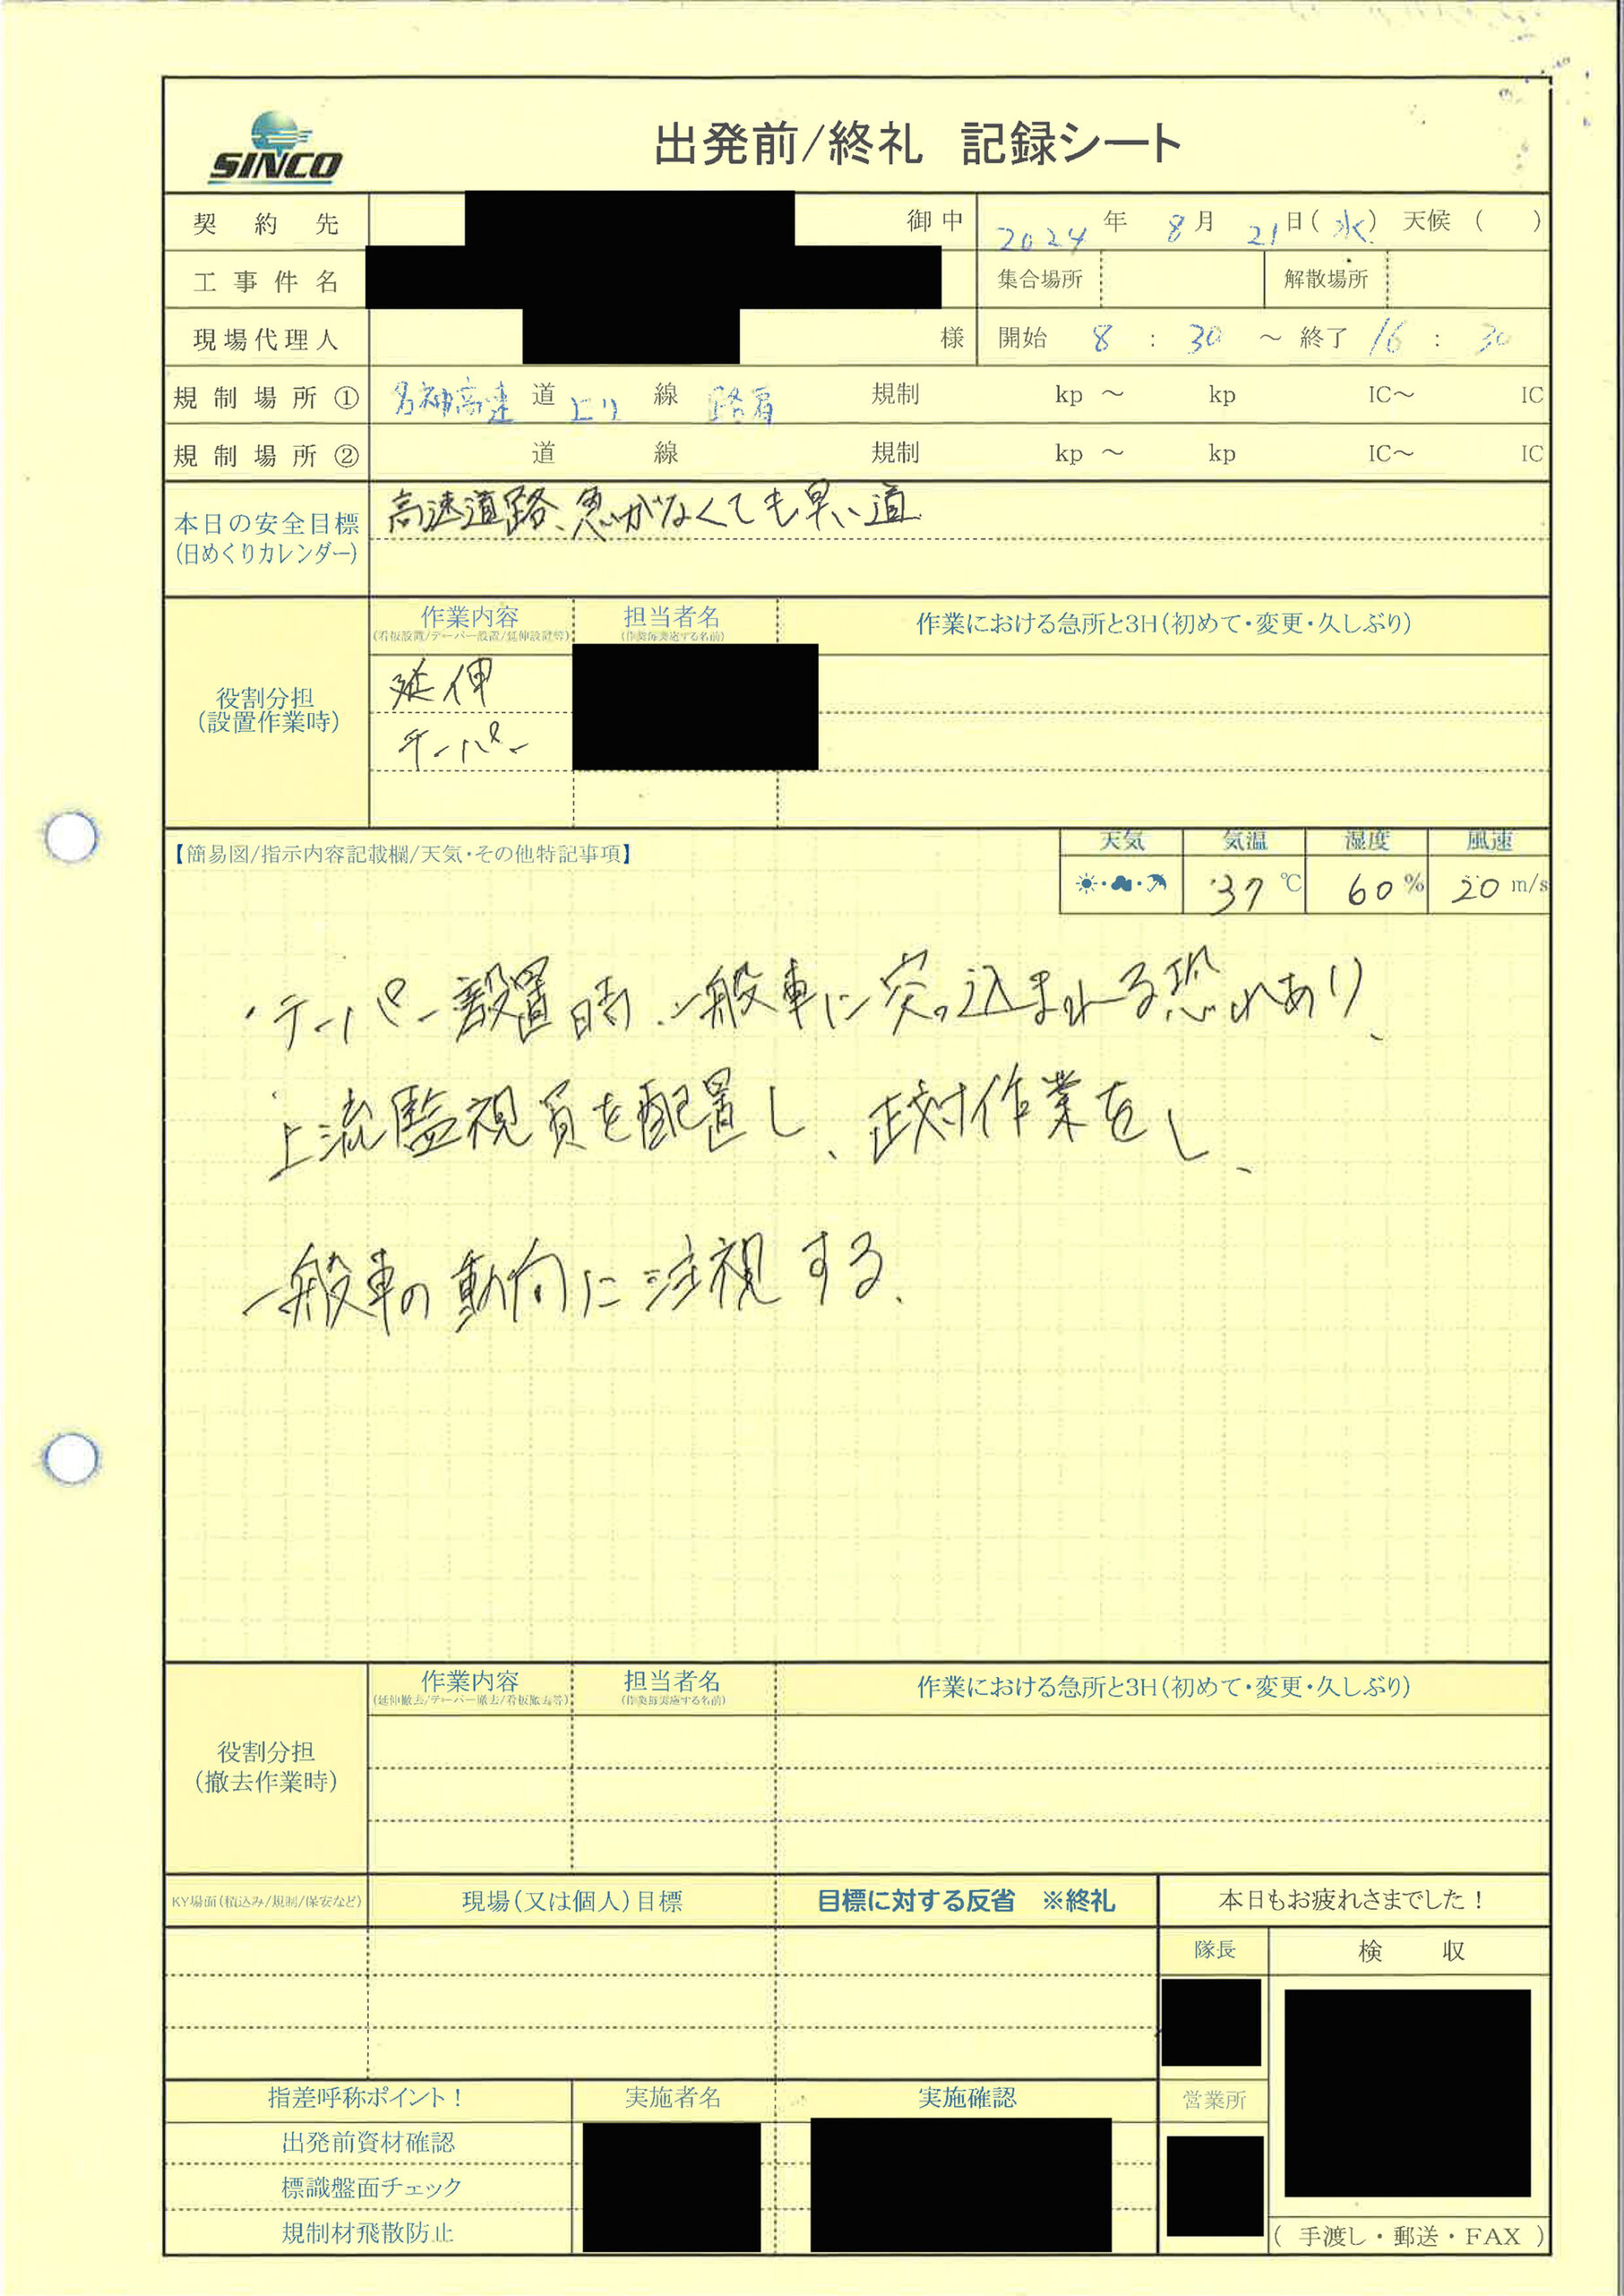 SINCO
出発前/終礼 記録シート
契約先 御中 2024年 8月 21日(水) 天候( )
工事件名 集合場所 解散場所
現場代理人 様 開始 8:30 ～ 終了 16:30
規制場所① 名神高速道 上り線 路肩 規制 kp ～ kp IC～ IC
規制場所② 道 線 規制 kp ～ kp IC～ IC
本日の安全目標 高速道路、急がなくても早い道
(日めくりカレンダー)
作業内容 担当者名 作業における急所と3H(初めて・変更・久しぶり)
(看板設置/テーパー設置/延伸設置等) (作業毎実施する名前)
役割分担
(設置作業時)
延伸
テーパー
【簡易図/指示内容記載欄/天気・その他特記事項】
天気 気温 湿度 風速
37℃ 60% 20m/s
・テーパー設置時、一般車に突っ込まれる恐れあり、
上流監視員を配置し、正対作業をし、
一般車の動向に注視する、
作業内容 担当者名 作業における急所と3H(初めて・変更・久しぶり)
(延伸撤去/テーパー撤去/看板撤去等) (作業毎実施する名前)
役割分担
(撤去作業時)
KY場面(積込み/規制/保安など) 現場(又は個人)目標 目標に対する反省 ※終礼 本日もお疲れさまでした！
隊長 検収
指差呼称ポイント！ 実施者名 実施確認 営業所
出発前資材確認
標識盤面チェック
規制材飛散防止
( 手渡し・郵送・FAX )